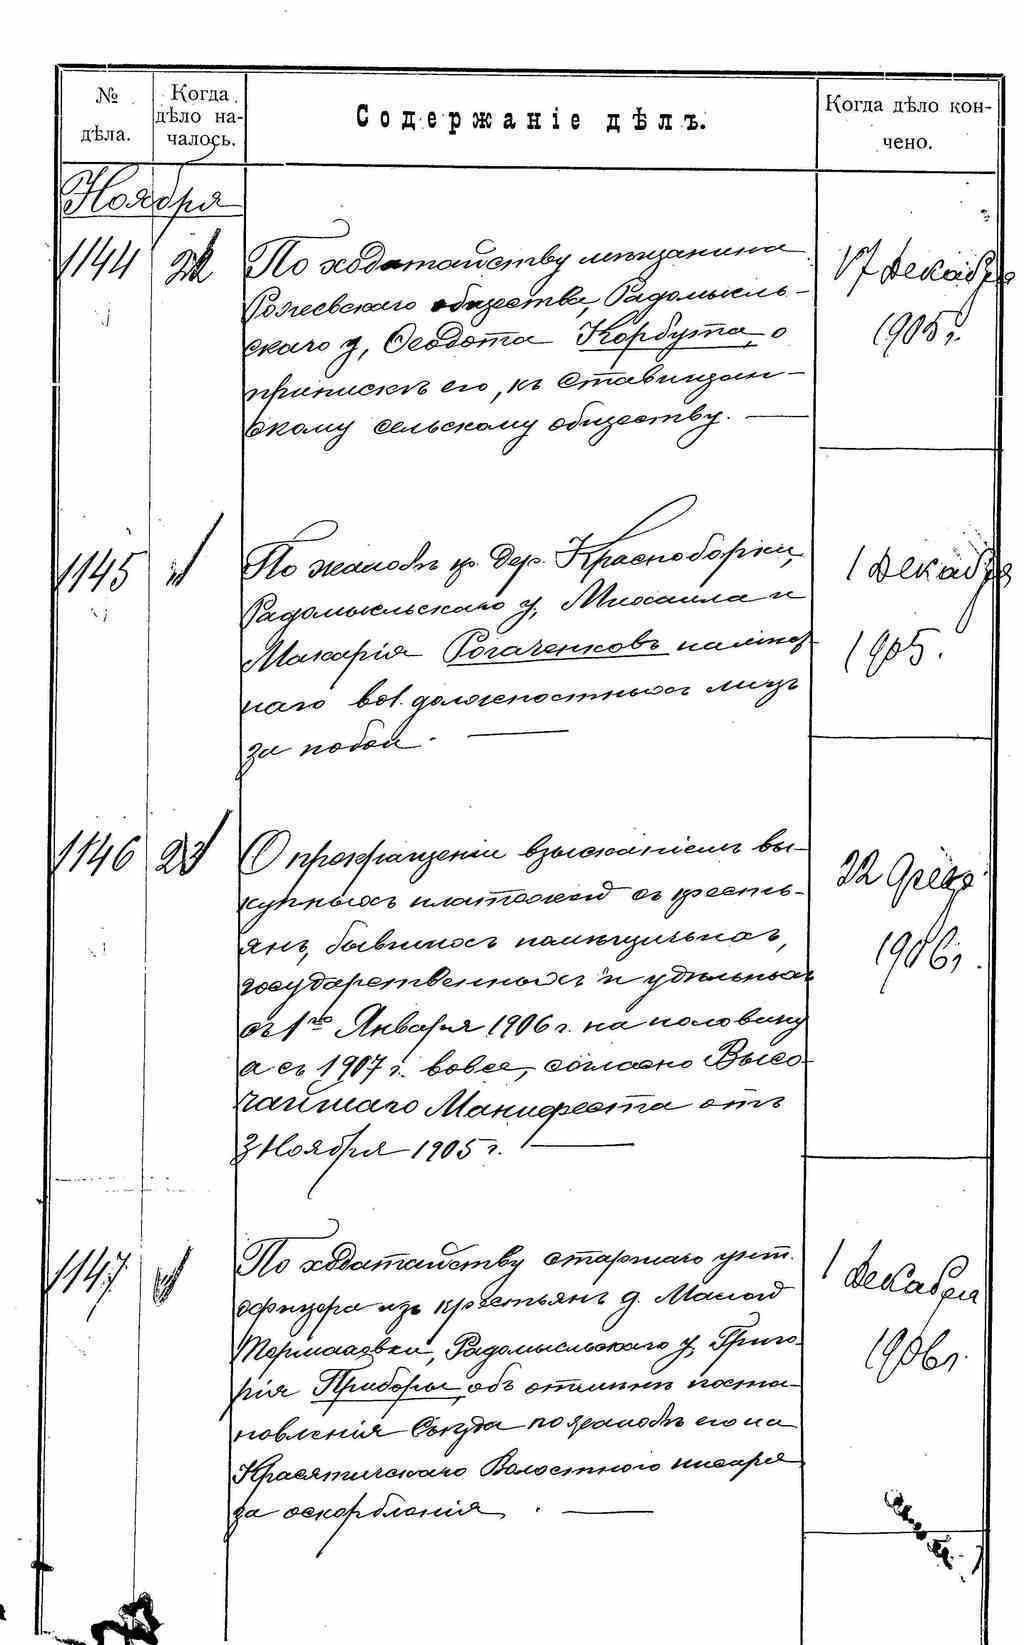 № дѣла.
Когда дѣло началось.
Содержаніе дѣлъ.
Когда дѣло кончено.
Ноября
1144
По ходатайству мѣщанина
17 Декабря
Рожевскаго общества, Радомысль-
1905 г.
скаго у, Ѳеодота Корбута, о
припискѣ его, къ Ставищан-
скому сельскому обществу.
1145
По жалобѣ кр. дер. Красноборки,
1 Декабря
Радомысльскаго у, Михаила и
1905.
Макарія Рогаченковъ на
наго вол. должностныхъ лицъ
за побои.
1146 23
О прекращеніи взысканіемъ вы-
22
купныхъ платежей съ кресть-
янъ, бывшихъ помѣщичьихъ,
1906 г.
государственныхъ и удѣльныхъ
съ 1го Января 1906 г. на половину
а съ 1907 г. вовсе, согласно Высо-
чайшаго Манифеста отъ
3 Ноября 1905 г.
1147
По ходатайству старшаго унт.
1 Декабря
офицера изъ крестьянъ д. Малой
Радомысльскаго у, Григо-
1906 г.
рія Приборы, объ отмѣнѣ поста-
новленія Съѣзда по жалобѣ его на
Красятичскаго Волостного писаря
за оскорбленія.